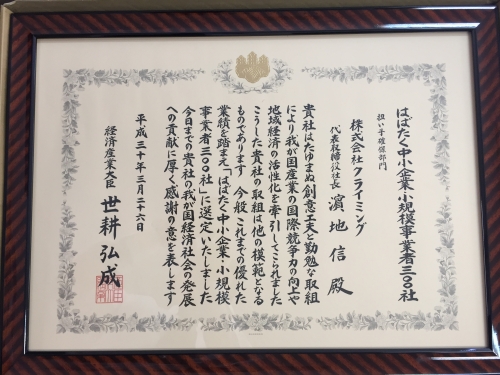 はばたく中小企業・小規模事業者三〇〇社
担い手確保部門
株式会社クライミング
代表取締役社長 濵地信 殿
貴社はたゆまぬ創意工夫と勤勉な取組
により我が国産業の国際競争力の向上や
地域経済の活性化を牽引してこられました
こうした貴社の取組は他の模範となる
ものであります 今般 これまでの優れた
業績を踏まえ「はばたく中小企業・小規模
事業者三〇〇社」に選定いたしました
今日までの貴社の我が国経済社会の発展
への貢献に厚く感謝の意を表します
平成三十年三月二十六日
経済産業大臣 世耕弘成